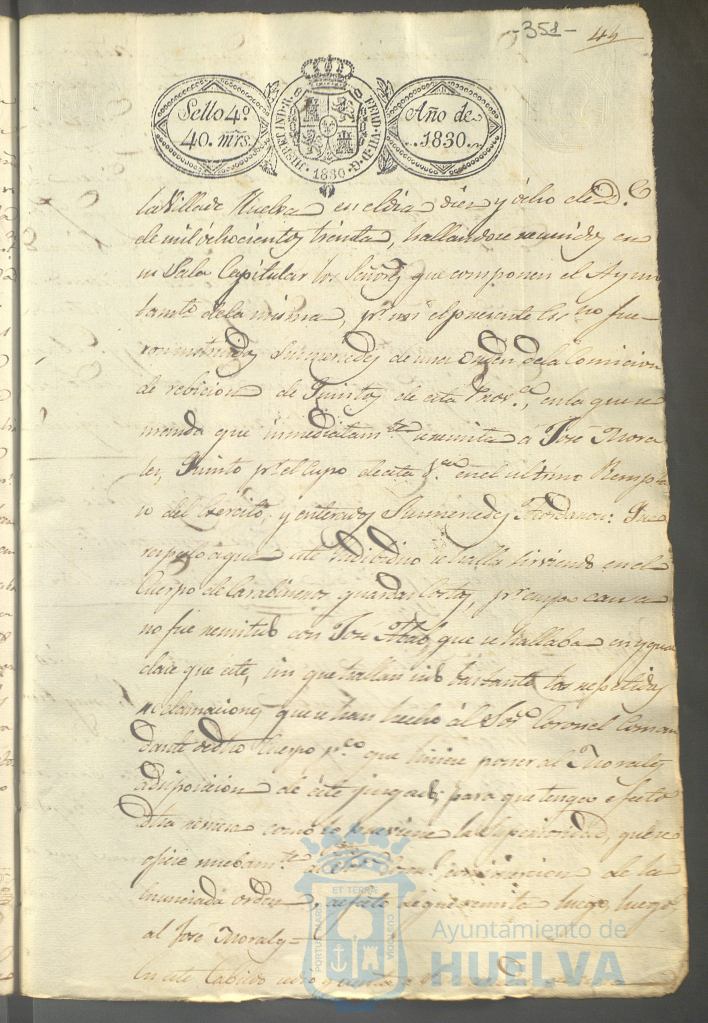 -351- 44
Sello 4º
40. mrs.
HISP. ET IND. R. FERD. VII. D. G. 1830
Año de
1830.
la Villa de Huelva en el dia diez y ocho de D.e
de mil ochocientos treinta, hallandose reunidos en
su Sala Capitular los Señores que componen el Ayun
tamto. de la misma, pr. mi el presente Esno. fue
ron instruidos Sus mercedes de una Orden de la Comicion
de rebicion de Quintos de esta Prova., en la que se
manda que inmediatamte. se remita á José Mora
les, Quinto pr. el Cupo de esta Va. en el ultimo Rempla
so del Exercito, y enterados Sus mercedes Acordaron: Que
respecto a que este Individuo se halla sirviendo en el
Cuerpo de Carabineros guardas Costas, pr. cuya causa
no fue remitido con José que se hallaba en ygual
clase que este, sin que hallan sido bastante las repetidas
reclamaciones que se han hecho al Sor. Coronel Coman
dante de dho Cuerpo pa. que poner al Morales
a disposicion de este juzgado, para que tenga efecto
dha remesa como lo previene la Superioridad, que se
oficie nuebamte. al con insercion de la
enunciada orden, a efecto de que remita luego, luego
al José Morales=
En este Cabildo
PORTUS MARIS ET TERRAE CUSTODIA
Ayuntamiento de
HUELVA